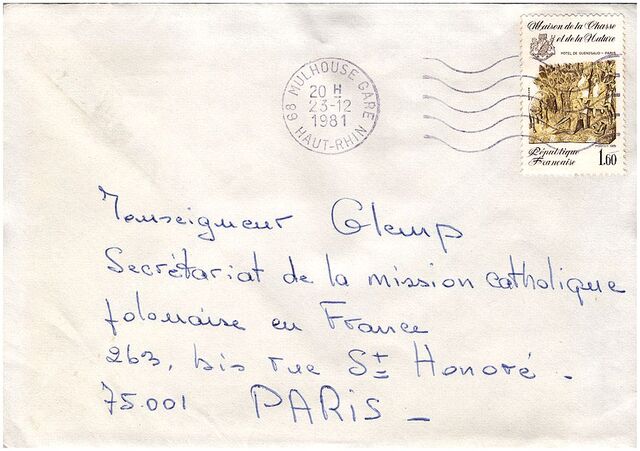 Maison de la Chasse
et de la Nature
HOTEL DE GUENEGAUD - PARIS
République
Française
1.60
68 MULHOUSE GARE
20 H
23-12
1981
HAUT-RHIN
Monseigneur Glemp
Secrétariat de la mission catholique
polonaise en France
263, bis rue St Honoré -
75.001 PARIS -